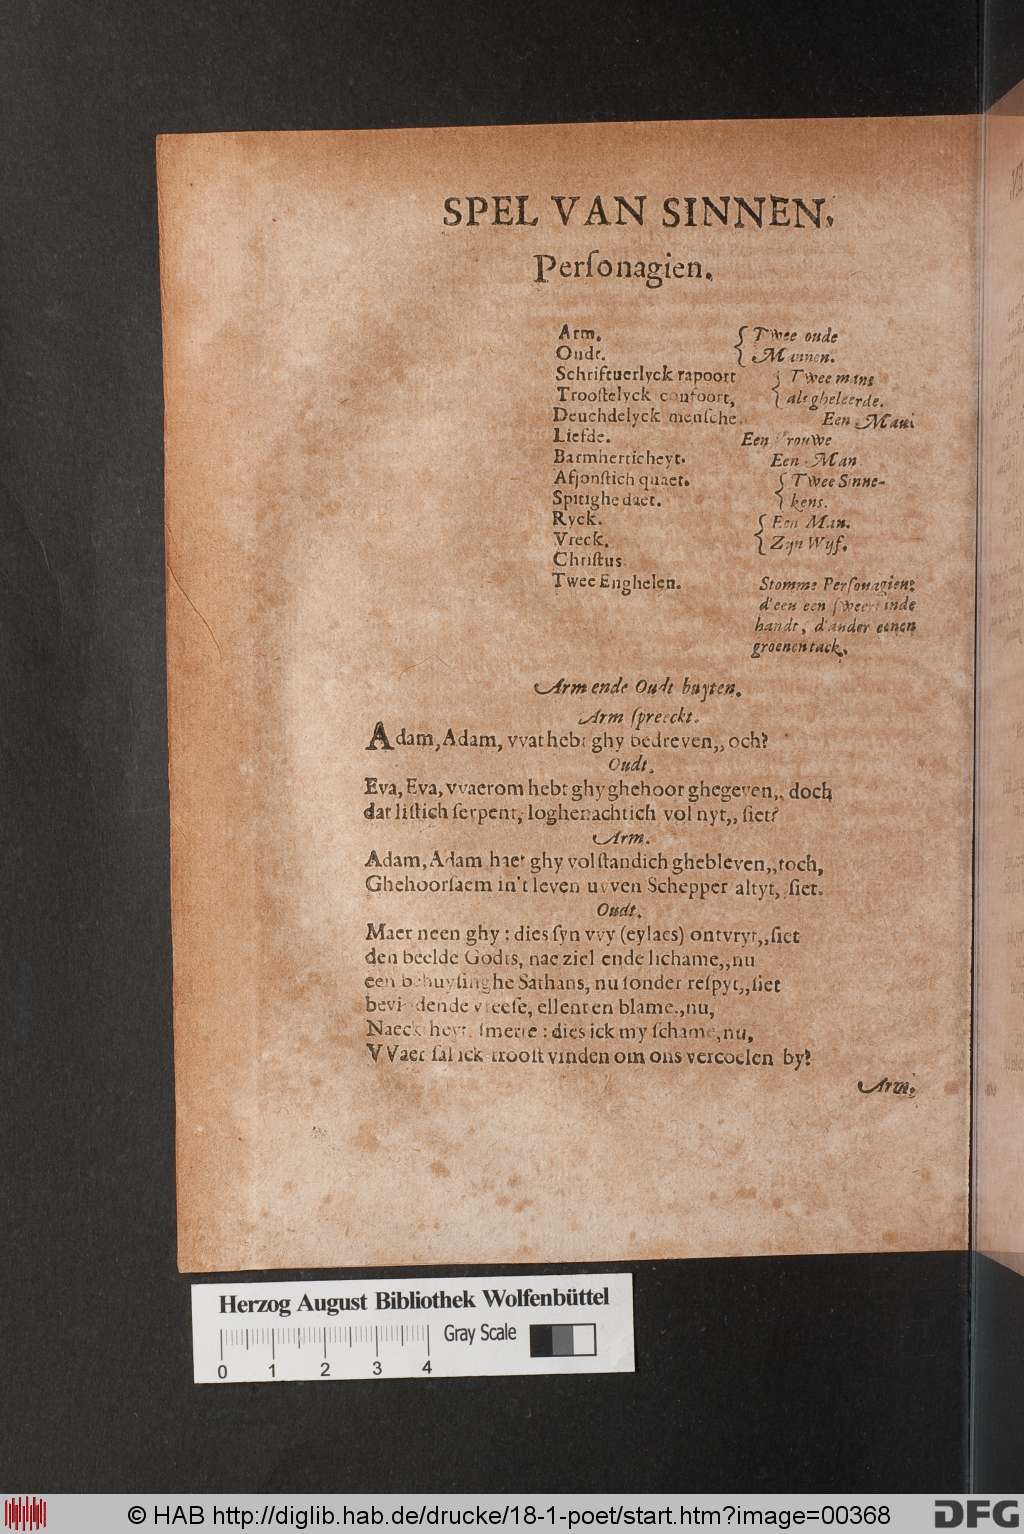 SPEL VAN SINNEN.
Perſonagien.
Arm. { Twee oude
Oudt. { Mannen.
Schriftuerlyck rapoort { Twee mans
Trooſtelyck confoort, { als gheleerde.
Deuchdelyck menſche. Een Man
Liefde. Een Vrouwe
Barmherticheyt. Een Man
Afjonſtich quaet. { Twee Sinne-
Spitighe daet. { kens.
Ryck. { Een Man.
Vreck. { Zyn Wyf.
Chriſtus.
Twee Enghelen. Stomme Perſonagien:
d'een een ſweert inde
handt, d'ander eenen
groenen tack.
Arm ende Oudt buyten.
Arm ſpreeckt.
Adam, Adam, vvat hebt ghy bedreven,, och?
Oudt.
Eva, Eva, vvaerom hebt ghy ghehoor ghegeven,, doch
dat liſtich ſerpent, loghenachtich vol nyt,, ſiet?
Arm.
Adam, Adam haet ghy volſtandich ghebleven,,toch,
Ghehoorſaem in't leven uvven Schepper altyt, ſiet.
Oudt.
Maer neen ghy : dies ſyn vvy (eylaes) ontvryt,,ſiet
den beelde Godts, nae ziel ende lichame,,nu
een behuyſinghe Sathans, nu ſonder reſpyt,,ſiet
bevindende vreeſe, ellent en blame,,nu,
Naeckheyt, ſmerte : dies ick my ſchame,nu,
VVaer ſal ick trooſt vinden om ons vercoelen by?
Arm.
Herzog August Bibliothek Wolfenbüttel
Gray Scale
0 1 2 3 4
© HAB http://diglib.hab.de/drucke/18-1-poet/start.htm?image=00368
DFG